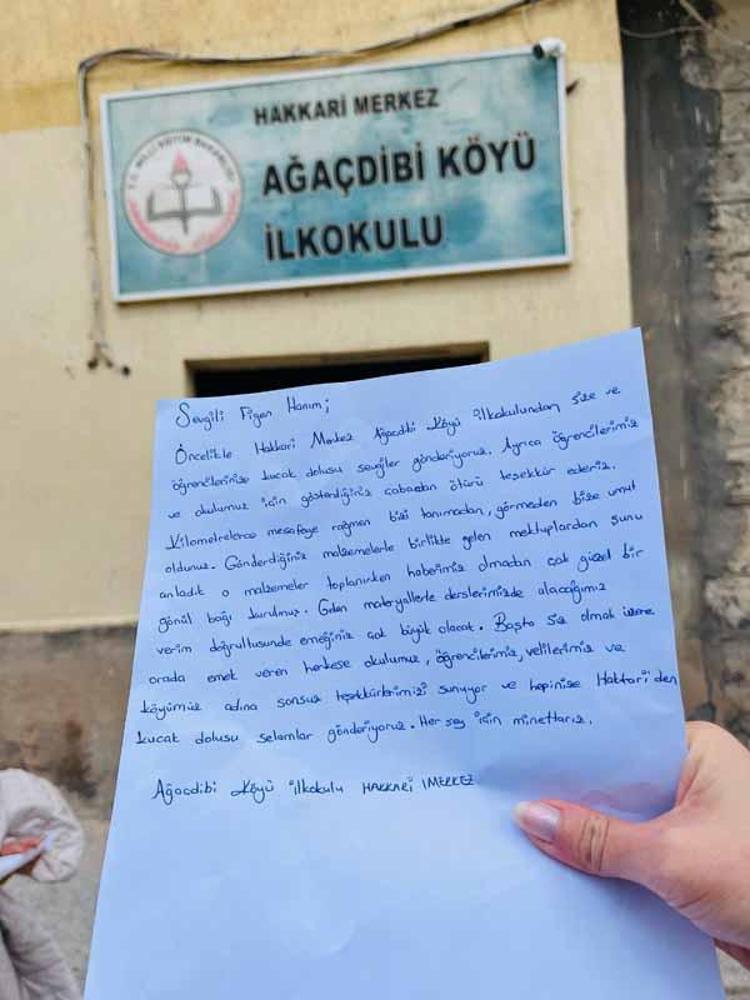 HAKKARİ MERKEZ
AĞAÇDİBİ KÖYÜ
İLKOKULU
T.C. MİLLİ EĞİTİM BAKANLIĞI
Sevgili Figen Hanım;
Öncelikle Hakkari Merkez Ağaçdibi Köyü ilkokulundan size ve
öğrencilerinize kucak dolusu sevgiler gönderiyoruz. Ayrıca öğrencilerimiz
ve okulumuz için gösterdiğiniz çabadan ötürü teşekkür ederiz.
Kilometrelerce mesafeye rağmen bizi tanımadan, görmeden bize umut
oldunuz. Gönderdiğiniz malzemelerle birlikte gelen mektuplardan şunu
anladık o malzemeler toplanırken haberimiz olmadan çok güzel bir
gönül bağı kurulmuş. Gelen materyallerle derslerimizde alacağımız
verim doğrultusunda emeğiniz çok büyük olacak. Başta siz olmak üzere
orada emek veren herkese okulumuz, öğrencilerimiz, velilerimiz ve
köyümüz adına sonsuz teşekkürlerimizi sunuyor ve hepinize Hakkari'den
kucak dolusu selamlar gönderiyoruz. Her şey için minettarız.
Ağaçdibi Köyü ilkokulu HAKKARİ / MERKEZ